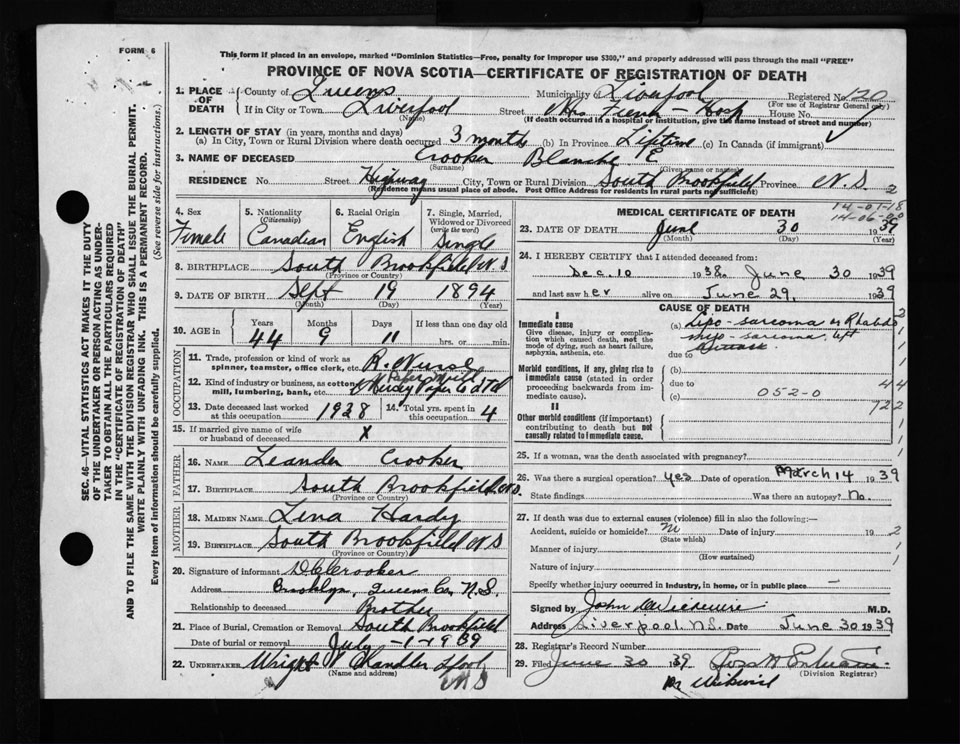 FORM 6
This form if placed in an envelope, marked "Dominion Statistics—Free, penalty for improper use $300," and properly addressed will pass through the mail "FREE"
PROVINCE OF NOVA SCOTIA—CERTIFICATE OF REGISTRATION OF DEATH
1. PLACE OF DEATH County of Queens Municipality of Liverpool Registered No. 120
(For use of Registrar General only)
If in City or Town Liverpool Street Mrs Hosp House No.
(Name) (If death occurred in a hospital or institution, give the name instead of street and number)
2. LENGTH OF STAY (in years, months and days)
(a) In City, Town or Rural Division where death occurred 3 months (b) In Province Lifetime (c) In Canada (if immigrant)
3. NAME OF DECEASED Crooker Blanche E
(Surname) (Given name or names)
RESIDENCE No. Street Highway City, Town or Rural Division South Brookfield Province N.S. 2
(Residence means usual place of abode. Post Office Address for residents in rural parts not sufficient)
4. Sex Female
5. Nationality (Citizenship) Canadian
6. Racial Origin English
7. Single, Married, Widowed or Divorced (write the word) Single
8. BIRTHPLACE South Brookfield N S
(Province or Country)
9. DATE OF BIRTH Sept 19 1894
(Month) (Day) (Year)
10. AGE in Years Months Days If less than one day old
44 9 11 hrs. or min.
OCCUPATION
11. Trade, profession or kind of work as spinner, teamster, office clerk, etc. R. Nurse
12. Kind of industry or business, as cotton mill, lumbering, bank, etc. Mersey Paper Co Ltd
13. Date deceased last worked at this occupation 1938
14. Total yrs. spent in this occupation 4
15. If married give name of wife or husband of deceased X
FATHER
16. NAME Leander Crooker
17. BIRTHPLACE South Brookfield, N.S.
(Province or Country)
MOTHER
18. MAIDEN NAME Lena Hardy
19. BIRTHPLACE South Brookfield N S
(Province or Country)
20. Signature of informant Crooker
Address Brooklyn, Queens Co. N.S.
Relationship to deceased Brother
21. Place of Burial, Cremation or Removal South Brookfield
Date of burial or removal July 1 1939
22. UNDERTAKER Wright Chandler Lpool
(Name and address) N S
MEDICAL CERTIFICATE OF DEATH
14-07-18
14-06-00
23. DATE OF DEATH June 30 1939
(Month) (Day) (Year)
24. I HEREBY CERTIFY that I attended deceased from:
Dec. 10 1938 June 30 1939
and last saw her alive on June 29, 1939
CAUSE OF DEATH
I
Immediate cause
Give disease, injury or complication which caused death, not the mode of dying, such as heart failure, asphyxia, asthenia, etc.
(a) Lipo-sarcoma or Rhabdo
myo-sarcoma, left
due to
Morbid conditions, if any, giving rise to immediate cause (stated in order proceeding backwards from immediate cause).
(b)
due to 44
(c) 052-0
722
II
Other morbid conditions (if important) contributing to death but not causally related to immediate cause.
25. If a woman, was the death associated with pregnancy?
26. Was there a surgical operation? yes Date of operation March 14 1939
State findings Was there an autopsy? No.
27. If death was due to external causes (violence) fill in also the following:—
Accident, suicide or homicide? Date of injury 19
(State which)
Manner of injury
(How sustained)
Nature of injury
Specify whether injury occurred in industry, in home, or in public place —
Signed by John M.D.
Address Liverpool N.S. Date June 30 1939
28. Registrar's Record Number
29. Filed June 30 1939
(Division Registrar)
SEC. 46—VITAL STATISTICS ACT MAKES IT THE DUTY
OF THE UNDERTAKER OR PERSON ACTING AS UNDERTAKER
TO OBTAIN ALL THE PARTICULARS REQUIRED
IN THE "CERTIFICATE OF REGISTRATION OF DEATH"
AND TO FILE THE SAME WITH THE DIVISION REGISTRAR WHO SHALL ISSUE THE BURIAL PERMIT.
WRITE PLAINLY WITH UNFADING INK. THIS IS A PERMANENT RECORD.
Every item of information should be carefully supplied. (See reverse side for instructions.)